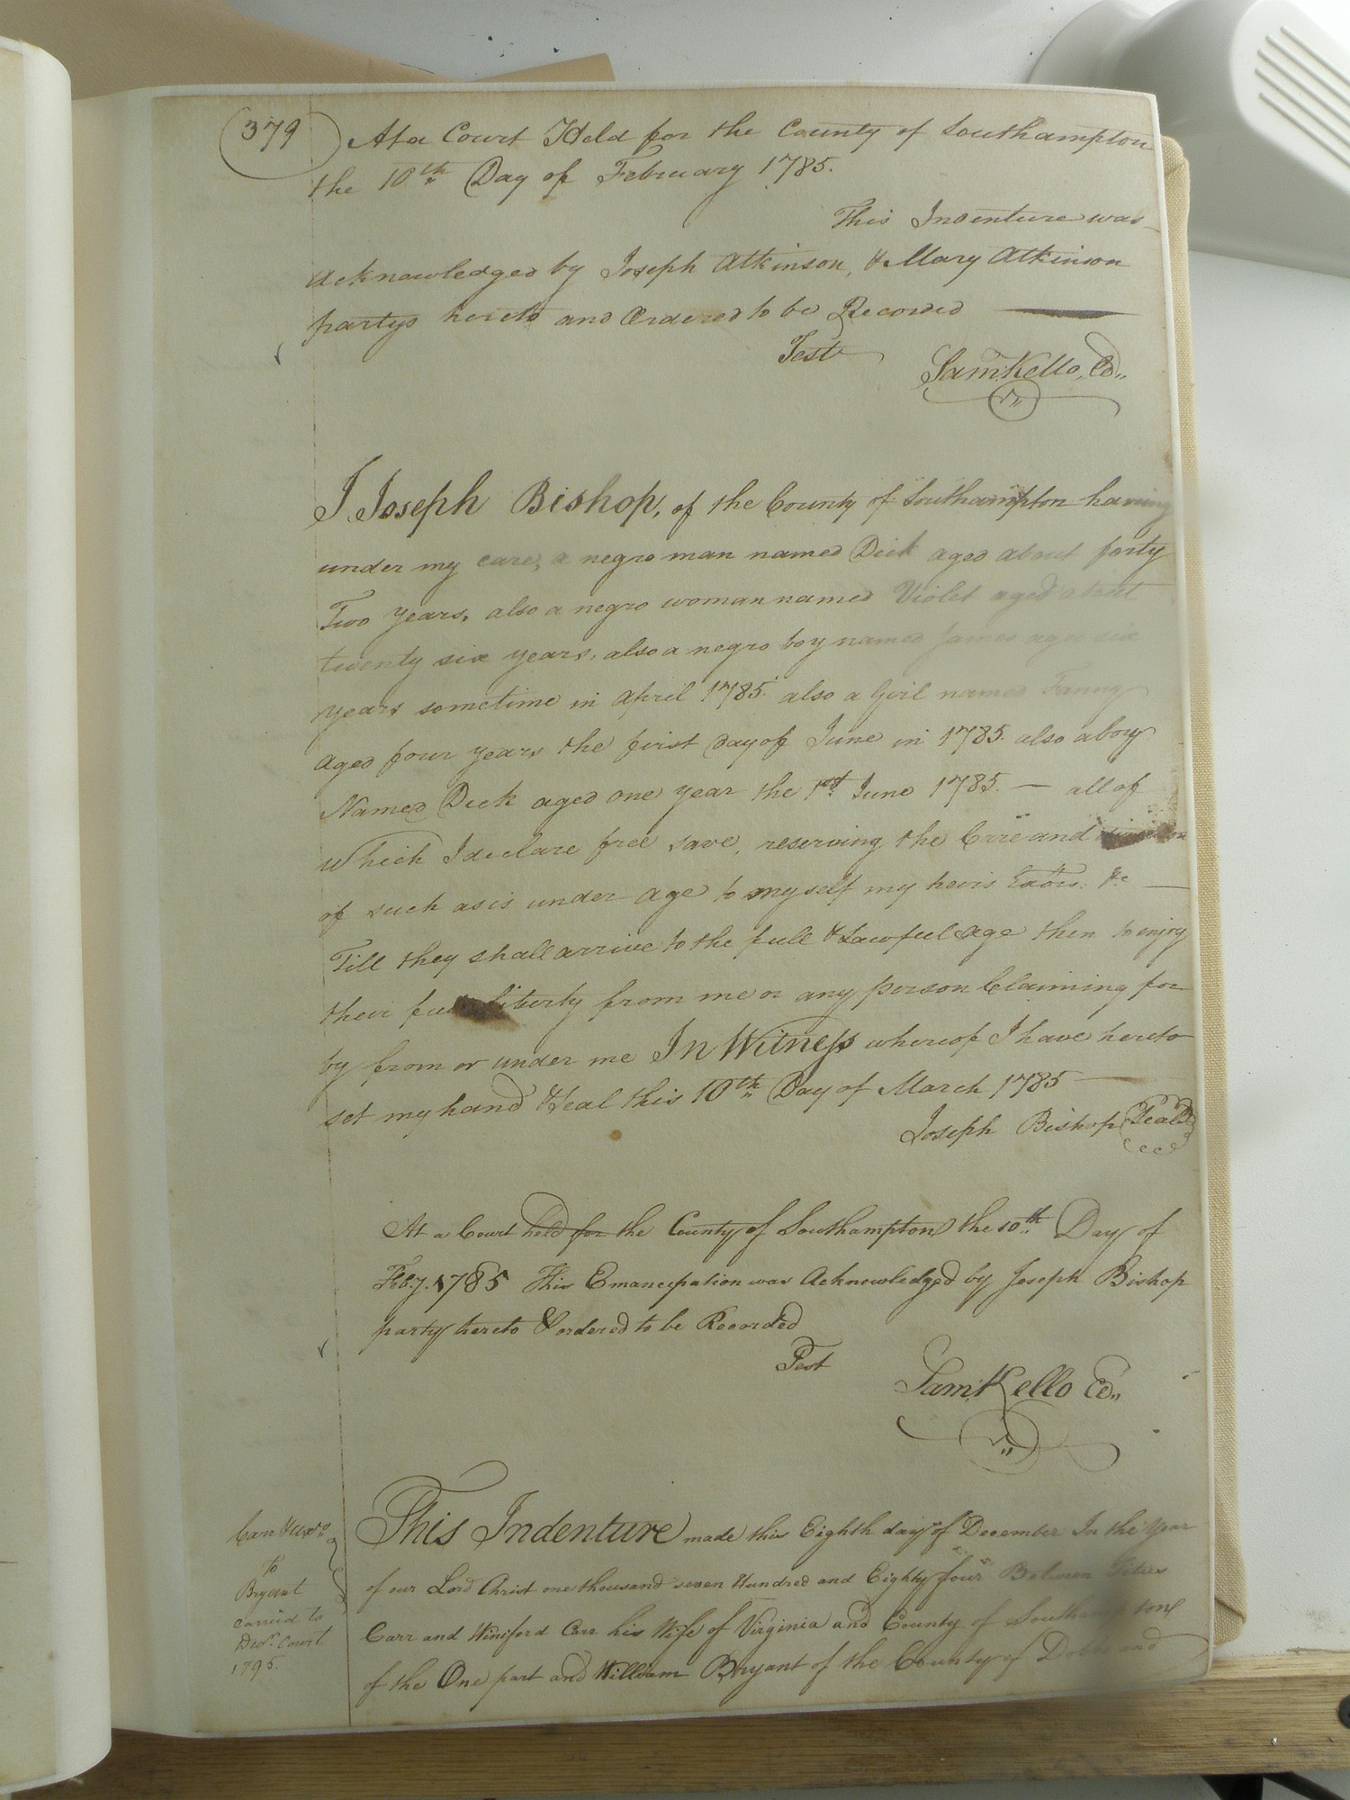 379
At a Court Held for the County of Southampton
the 10th Day of February 1785.
This Indenture was
Acknowledged by Joseph Atkinson, & Mary Atkinson
partys hereto and Ordered to be Recorded
Test
Sam Kello, Cd,,
I Joseph Bishop, of the County of Southampton having
under my care, a negro man named Dick aged about forty
Two years, also a negro woman named Violet aged about
twenty six years, also a negro boy named James aged six
years sometime in April 1785. also a Girl named Fanny
aged four years the first day of June in 1785. also a boy
Named Dick aged one year the 1st June 1785. — all of
Which I declare free save, reserving the Care and
of such as is under age to myself my heirs Exors. &c —
Till they shall arrive to the full & Lawful age then to enjoy
their full liberty from me or any person Claiming for
by from or under me In Witness whereof I have hereto
set my hand & Seal this 10th Day of March 1785 —
Joseph Bishop Seal
At a Court held for the County of Southampton the 10th Day of
Feb.y. 1785 This Emancepation was Acknowledged by Joseph Bishop
party hereto & ordered to be Recorded
Test
Sam Kello Cd,,
Carr & Uxr.
to
Bryant
carried to
Dist. Court
1795.
This Indenture made this Eighth day of December In the Year
of our Lord Christ one thousand seven Hundred and Eighty four Between Titus
Carr and Winiford Carr his Wife of Virginia and County of Southampton
of the One part and William Bryant of the County of Dobbs and